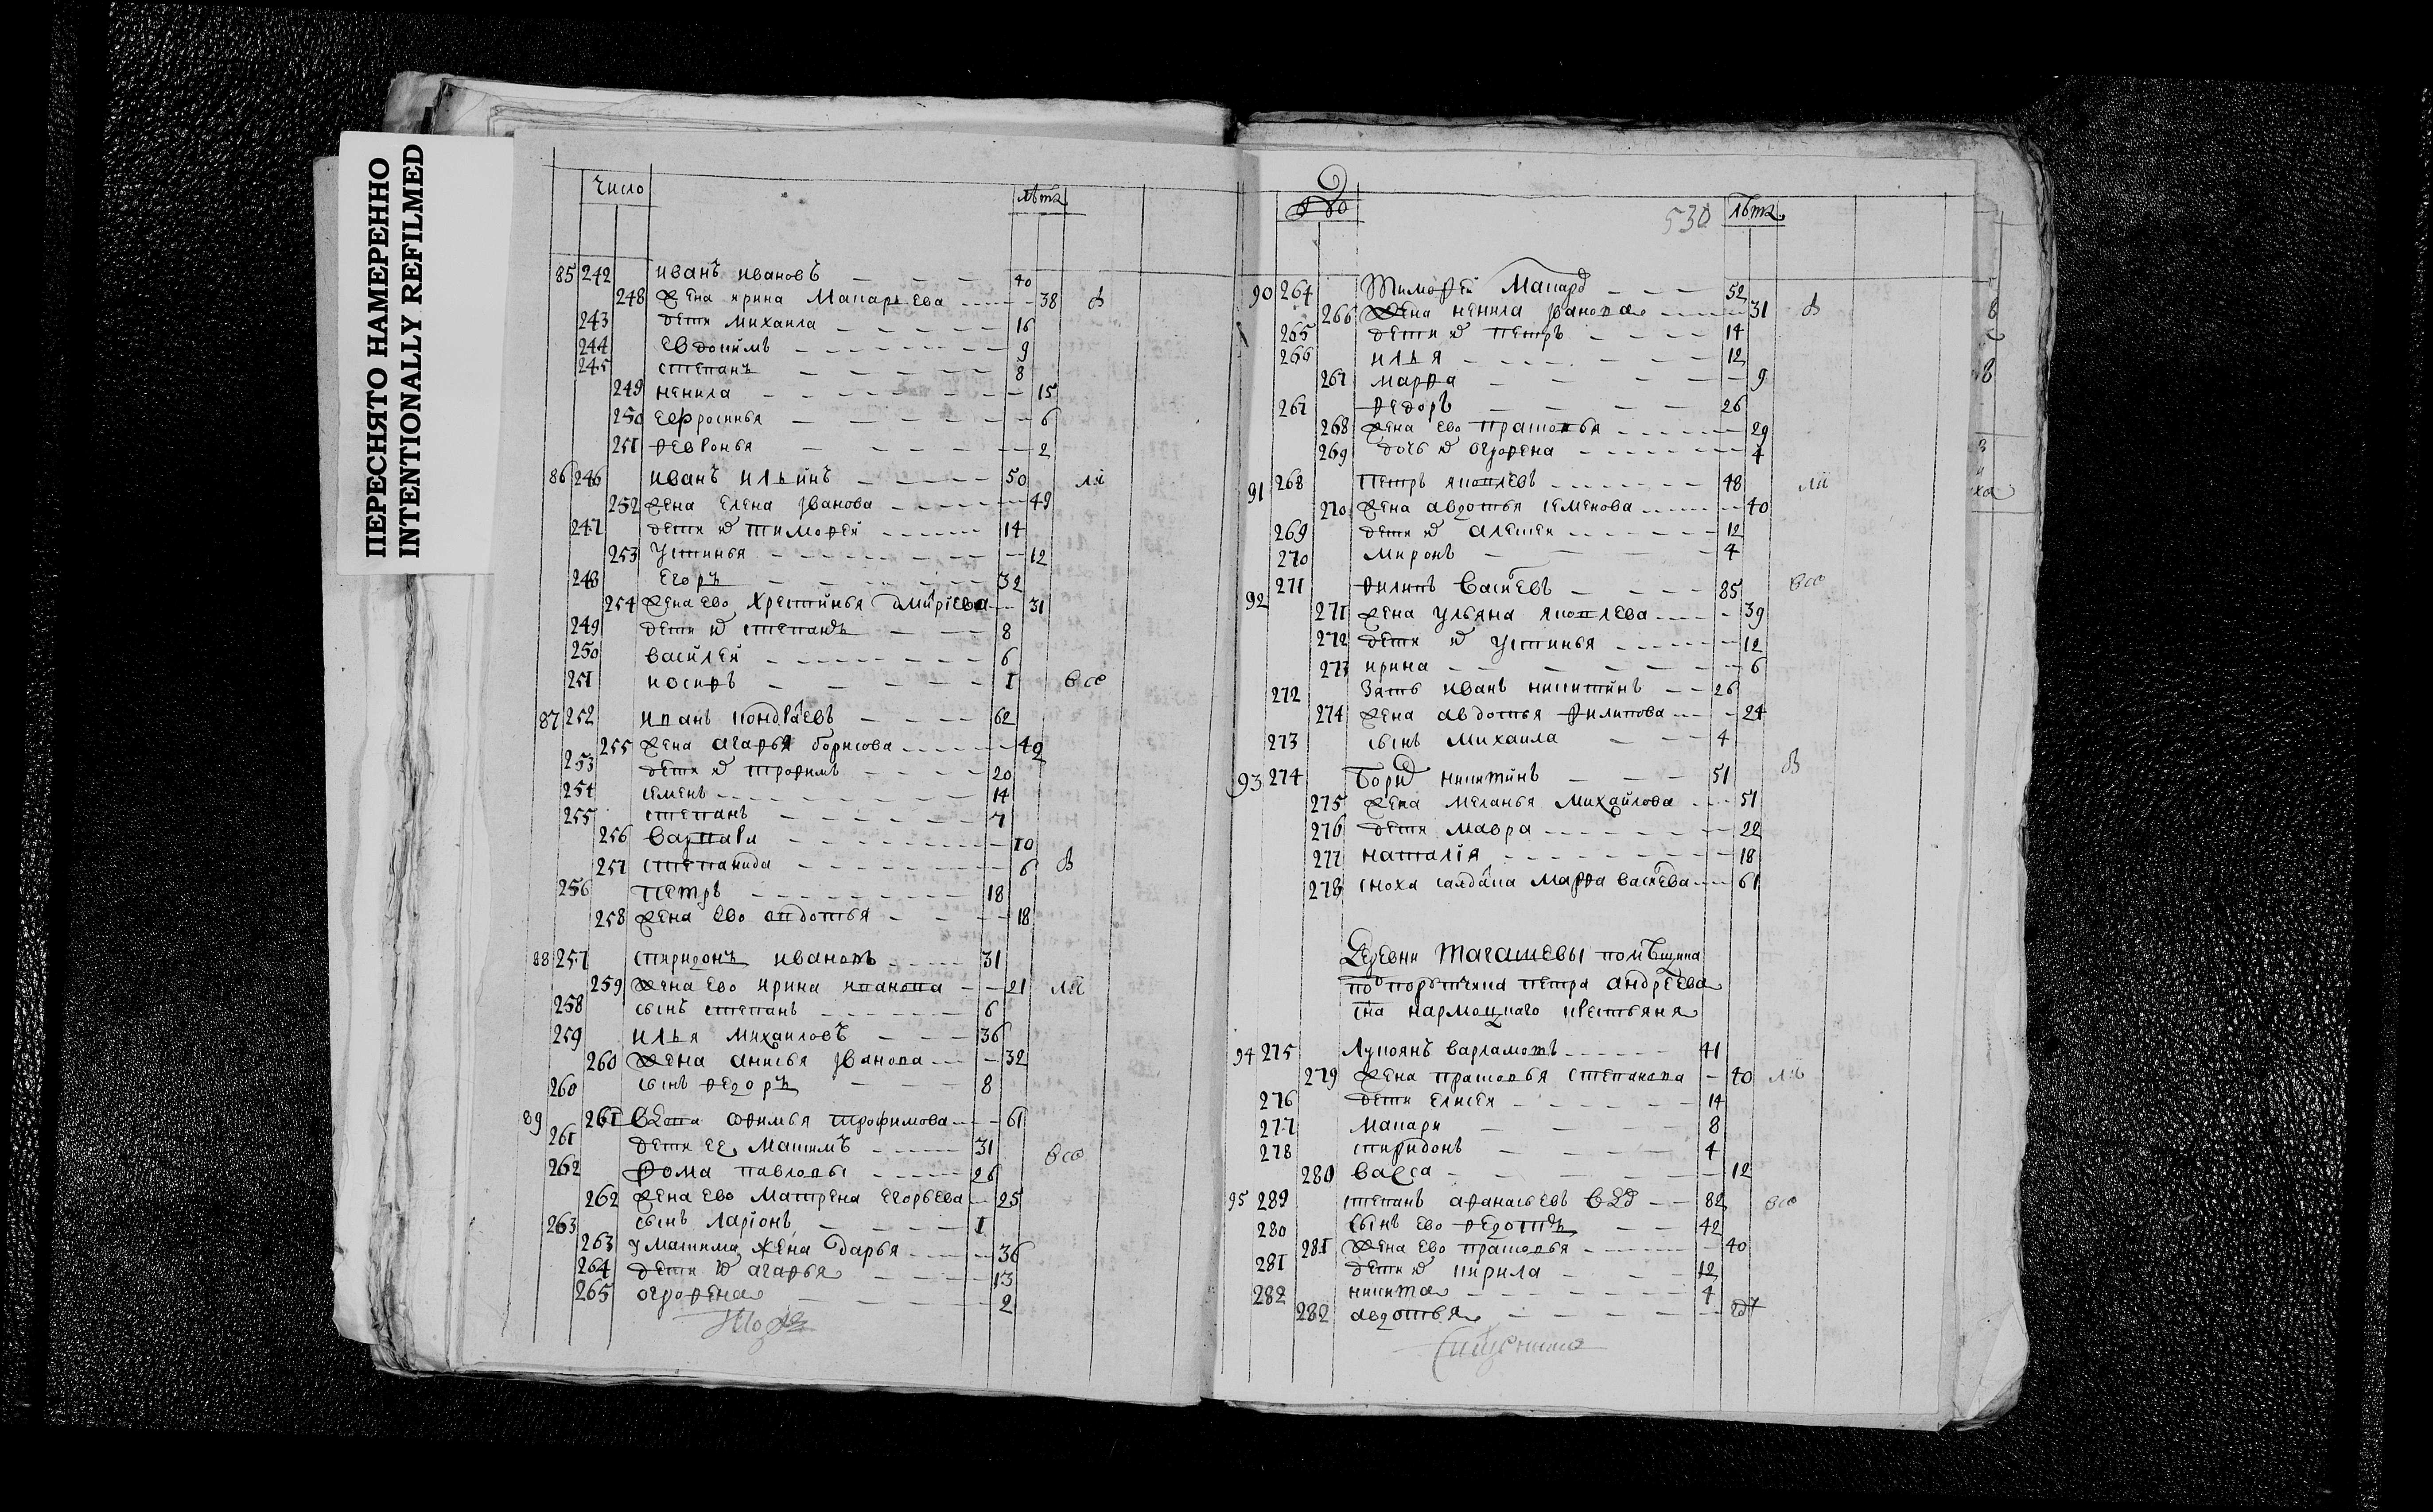 ПЕРЕСНЯТО НАМЕРЕННО
INTENTIONALLY REFILMED
Число лѣта
85 242 иванъ ивановъ 40
248 жена ирина Макарьева 38
243 дети михаила 16
244 Евдокимъ 9
245 степанъ 8
249 ненила 15
250 Ефросинья 6
251 февронья 2
86 246 иванъ ильинъ 50
252 жена Елена иванова 49
247 дети их тимофей 14
253 Устинья 12
248 Егоръ 32
254 жена ево Хрестинья дмитріева 31
249 дети их степанъ 8
250 василей 6
251 иосифъ 1
87 252 иванъ кондратьевъ 62
255 жена агафья борисова 49
253 дети их трофимъ 20
254 семенъ 14
255 степанъ 7
256 Варвара 10
257 степанида 6
256 Петръ 18
258 жена ево авдотья 18
88 257 спиридонъ ивановъ 31
259 жена ево ирина иванова 21
258 сынъ степанъ 6
259 илья михаиловъ 36
260 жена анисья иванова 32
260 сынъ федоръ 8
89 261 вдова афимья трофимова 61
261 дети ее Макимъ 31
262 фома павловы 26
262 жена ево Матрена Егорьева 25
263 сынъ Ларіонъ 1
263 у макима жена дарья 36
264 дети их агафья 13
265 огрофена 2
530 лѣта
90 264 Тимофей Макаровъ 52
266 жена ненила иванова 31
265 дети их петръ 14
266 илья 12
267 марфа 9
267 федоръ 26
268 жена ево прасковья 29
269 дочь их огрофена 4
91 268 Петръ яковлевъ 48
270 жена авдотья семенова 40
269 дети их алексей 12
270 миронъ 4
92 271 филипъ васильевъ 85
271 жена ульяна яковлева 39
272 дети их устинья 12
273 ирина 6
272 Зять иванъ никитинъ 26
274 жена авдотья филипова 24
273 сынъ михаила 4
93 274 Борисъ никитинъ 51
275 жена меланья михайлова 51
276 дети мавра 22
277 наталія 18
278 сноха салдатка марфа васильева 61
Деревни Тагашевы помѣщика
подпорутчика петра андрѣева
сна кармоцкаго крестьяня
94 275 Лукоянъ варламовъ 41
279 жена прасковья степанова 40
276 дети елисей 14
277 Макаръ 8
278 спиридонъ 4
280 васса 12
95 289 степанъ афанасьевъ вдовъ 82
280 сынъ ево федотъ 42
281 жена ево прасковья 40
281 дети их кирила 12
282 никита 4
282 авдотья